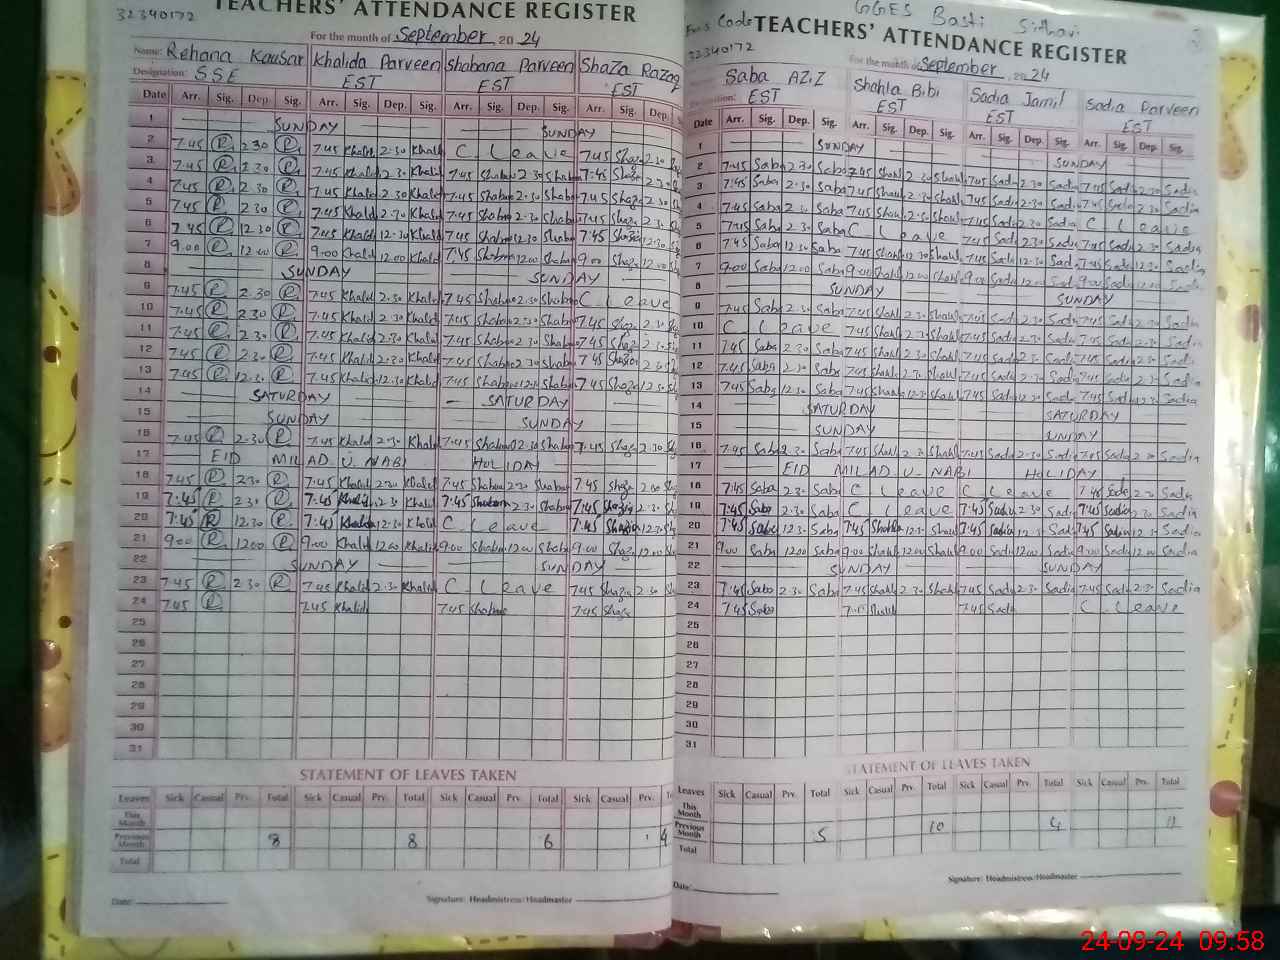 32340172
TEACHERS' ATTENDANCE REGISTER
For the month of September 2024
Name: Rehana Kausar Khalida Parveen Shabana Parveen Shaza Razaq
Designation: SSE EST EST EST
Date Arr. Sig. Dep. Sig. Arr. Sig. Dep. Sig. Arr. Sig. Dep. Sig. Arr. Sig. Dep.
1 SUNDAY SUNDAY
2 7.45 R 2.30 R 7.45 Khalid 2.30 Khalid C. Leave 7.45 Shaz 2.30
3 7.45 R 2.30 R 7.45 Khalid 2.30 Khalid 7.45 Shaban 2.30 Shaban 7.45 Shaza
4 7.45 R 2.30 R 7.45 Khalid 2.30 Khalid 7.45 Shaban 2.30 Shaban 7.45 Shaza
5 7.45 R 2.30 R 7.45 Khalid 2.30 Khalid 7.45 Shaban 2.30 Shaban 7.45 Shaza 2.30
6 7.45 R 12.30 R 7.45 Khalid 12.30 Khalid 7.45 Shaban 12.30 Shaban 7.45 12.30
7 9.00 R 12.00 R 9.00 Khalid 12.00 Khalid 7.45 Shaban 12.00 Shaban 9.00 Shaz 12.00
8 SUNDAY SUNDAY
9 7.45 R 2.30 R 7.45 Khalid 2.30 Khalid 7.45 Shaban 2.30 Shaban C Leave
10 7.45 R 2.30 R 7.45 Khalid 2.30 Khalid 7.45 Shaban 2.30 Shaban 7.45 Shaz 2.30
11 7.45 R 2.30 R 7.45 Khalid 2.30 Khalid 7.45 Shaban 2.30 Shaban 7.45 Shaz 2.30
12 7.45 R 2.30 R 7.45 Khalid 2.30 Khalid 7.45 Shaban 2.30 Shaban 7.45
13 7.45 R 12.30 R 7.45 Khalid 12.30 Khalid 7.45 Shaban Shaban 7.45 Shaza 12.30
14 SATURDAY SATURDAY
15 SUNDAY SUNDAY
16 7.45 R 2.30 R 7.45 Khalid 2.30 Khalid 7.45 Shaban 2.30 Shaban 7.45 Shaz 2.30
17 EID MILAD. U. NABI HOLIDAY
18 7.45 R 2.30 R 7.45 Khalid 2.30 Khalid 7.45 Shaban 2.30 Shaban 7.45 Shaza
19 7.45 R 2.30 R 7.45 Khalid 2.30 Khalid 7.45 Shaban 2.30 Shaban 7.45 2.30
20 7.45 R 12.30 R 7.45 Khalid 12.30 Khalid C Leave 7.45 12.30
21 9.00 R 12.00 R 9.00 Khalid 12.00 Khalid 9.00 Shaban 12.00 Shaban 9.00 Shaz 12.00
22 SUNDAY SUNDAY
23 7.45 R 2.30 R 7.45 Khalid 2.30 Khalid C. Leave 7.45 Shaza 2.30
24 7.45 R 7.45 Khalid 7.45 Shaban 7.45 Shaza
25
26
27
28
29
30
31
STATEMENT OF LEAVES TAKEN
Leaves Sick Casual Prv. Total Sick Casual Prv. Total Sick Casual Prv. Total Sick Casual Prv.
This Month
Previous Month 8 8 6 4
Total
Date:
Signature: Headmistress/Headmaster
GGES Basti
Code
32340172
TEACHERS' ATTENDANCE REGISTER
For the month of September 2024
Saba AZIZ Shahla Bibi Sadia Jamil Sadia Parveen
EST EST EST EST
Date Arr. Sig. Dep. Sig. Arr. Sig. Dep. Sig. Arr. Sig. Dep. Sig. Arr. Sig. Dep. Sig.
1 SUNDAY SUNDAY
2 7.45 Saba 2.30 Saba 7.45 Shahl 2.30 Shahl 7.45 Sadi 2.30 Sadi 7.45 Sadi 2.30 Sadia
3 7.45 Saba 2.30 Saba 7.45 Shahl 2.30 Shahl 7.45 Sadi 2.30 Sadi 7.45 Sadi 2.30 Sadia
4 7.45 Saba 2.30 Saba 7.45 Shahl 2.30 Shahl 7.45 Sadi 2.30 Sadi 7.45 Sadi 2.30 Sadia
5 7.45 Saba 2.30 Saba C Leave 7.45 Sadi 2.30 Sadi C Leave
6 7.45 Saba 12.30 Saba 7.45 Shahl 12.30 Shahl 7.45 Sadi 12.30 Sadi 7.45 Sadi 12.30 Sadia
7 9.00 Saba 12.00 Saba 9.00 Shahl 12.00 Shahl 9.00 Sadi 12.00 Sadi 9.00 Sadi 12.00 Sadi
8 SUNDAY SUNDAY
9 7.45 Saba 2.30 Saba 7.45 Shahl 2.30 Shahl 7.45 Sadi 2.30 Sadi 7.45 Sadi 2.30 Sadia
10 C Leave 7.45 Shahl 2.30 Shahl 7.45 Sadi 2.30 Sadi 7.45 Sadi 2.30 Sadia
11 7.45 Saba 2.30 Saba 7.45 Shahl 2.30 Shahl 7.45 Sadi 2.30 Sadi 7.45 Sadi 2.30 Sadia
12 7.45 Saba 2.30 Saba 7.45 Shahl 2.30 Shahl 7.45 Sadi 2.30 Sadi 7.45 Sadi 2.30 Sadia
13 7.45 Saba 12.30 Saba 7.45 Shahl 12.30 Shahl 7.45 Sadi 12.30 Sadi 7.45 Sadi 12.30 Sadia
14 SATURDAY SATURDAY
15 SUNDAY SUNDAY
16 7.45 Saba 2.30 Saba 7.45 Shahl 2.30 Shahl 7.45 Sadi 2.30 Sadi 7.45 Sadi 2.30 Sadia
17 EID MILAD U. NABI HOLIDAY
18 7.45 Saba 2.30 Saba C Leave C Leave 7.45 Sadi 2.30 Sadia
19 7.45 Saba 2.30 Saba C Leave 7.45 Sadia 2.30 Sadi 7.45 Sadia 2.30 Sadia
20 7.45 Saba 12.30 Saba 7.45 Shahla 12.30 Shahl 7.45 Sadia 12.30 Sadi 7.45 Sadia 12.30 Sadia
21 9.00 Saba 12.00 Saba 9.00 Shahl 12.00 Shahl 9.00 Sadi 12.00 Sadi 9.00 Sadi 12.00 Sadia
22 SUNDAY SUNDAY
23 7.45 Saba 2.30 Saba 7.45 Shahl 2.30 Shahl 7.45 Sadi 2.30 Sadi 7.45 Sadi 2.30 Sadia
24 7.45 Saba 7.45 Shahl 7.45 Sadi C. Leave
25
26
27
28
29
30
31
STATEMENT OF LEAVES TAKEN
Leaves Sick Casual Prv. Total Sick Casual Prv. Total Sick Casual Prv. Total Sick Casual Prv. Total
This Month
Previous Month 5 10 4 11
Total
Date:
Signature: Headmistress/Headmaster
24-09-24 09:58